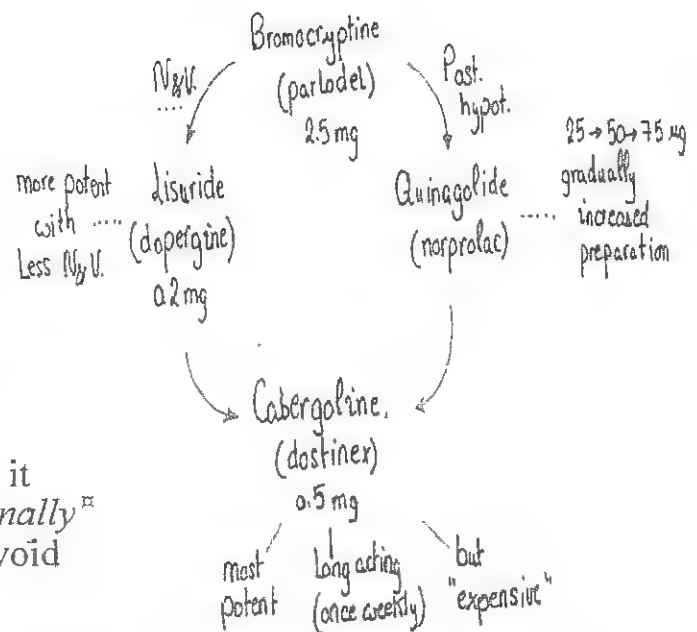 Bromocryptine
(parlodel)
2.5 mg
N&V.
Post.
hypot.
more potent
with
Less N&V.
Lisuride
(dopergine)
0.2 mg
Quinagolide
(norprolac)
25 → 50 → 75 µg
gradually
increased
preparation
Cabergoline.
(dostinex)
0.5 mg
most
potent
Long acting
(once weekly)
but
"expensive"
it
nally¤
void